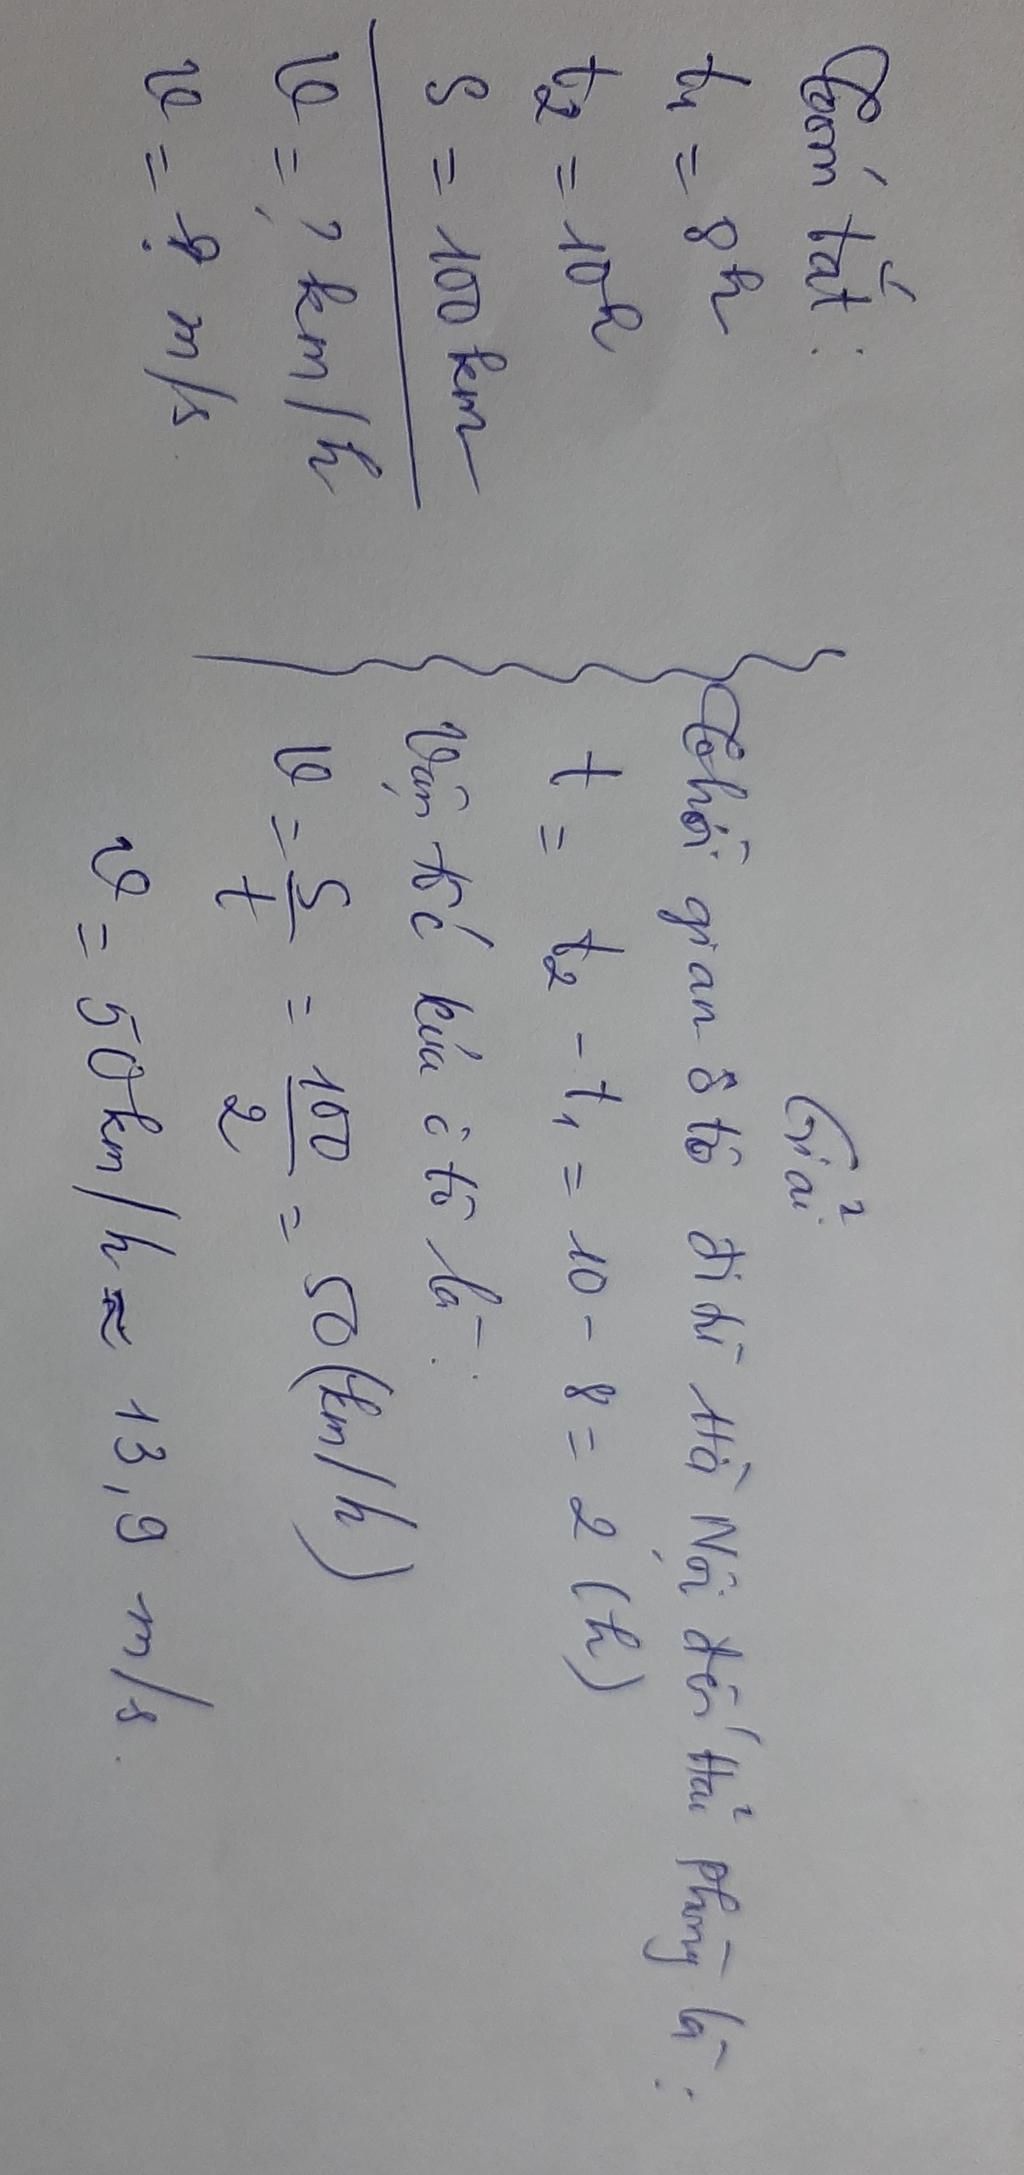 Tóm tắt:
t₁ = 8h
t₂ = 10h
S = 100km
v = ? km/h
v = ? m/s
Giải
Thời gian ô tô đi từ Hà Nội đến Hải Phòng là:
t = t₂ - t₁ = 10 - 8 = 2 (h)
Vận tốc của ô tô là:
v = S/t = 100/2 = 50 (km/h)
v = 50km/h ≈ 13,9 m/s.